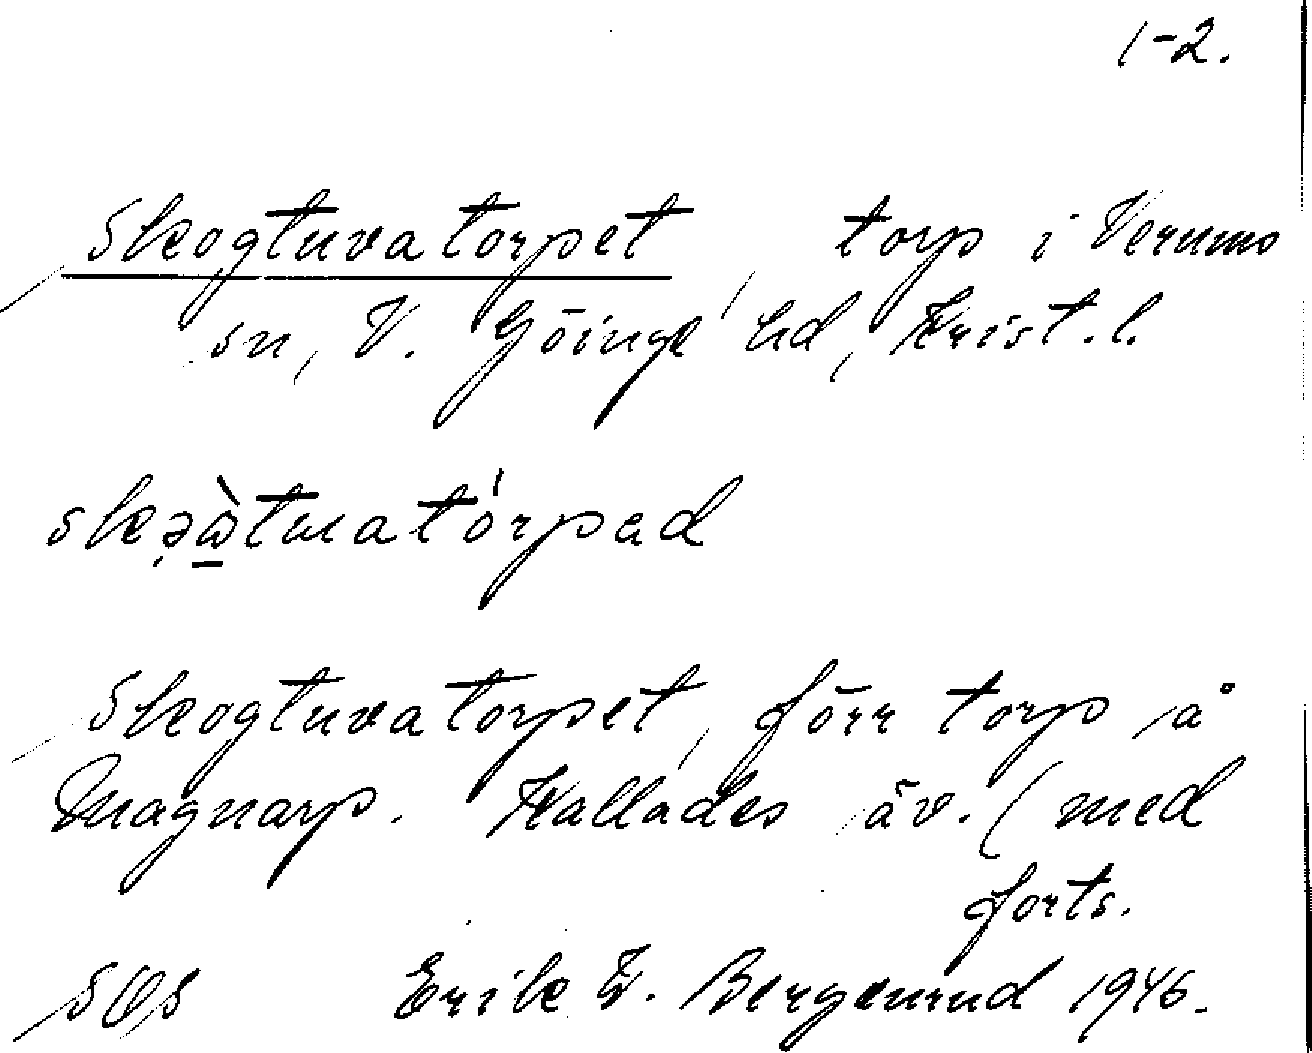 1-2.
Skogtuvatorpet, torp i Verums
sn, V. Göinge hd, Krist. l.
Skogtuvatorpet, förr torp å
Magnarp. Kallades äv. (med
forts.
SOS Erik F. Bergenrud 1946.